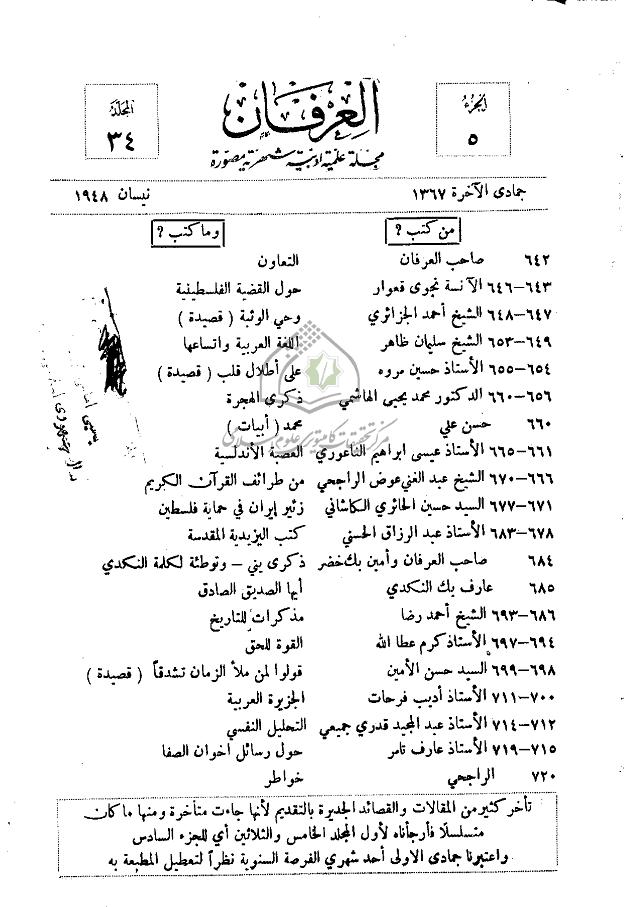 الجزء
٥
العرفان
المجلد
٣٤
مجلة علمية ادبية شهرية مصورة
جمادى الآخرة ١٣٦٧ نيسان ١٩٤٨
من كتب ؟ وما كتب ؟
٦٤٢ صاحب العرفان التعاون
٦٤٣-٦٤٦ الآنسة نجوى قعوار حول القضية الفلسطينية
٦٤٧-٦٤٨ الشيخ أحمد الجزائري وحي الوثبة ( قصيدة )
٦٤٩-٦٥٣ الشيخ سليمان ظاهر اللغة العربية واتساعها
٦٥٤-٦٥٥ الأستاذ حسين مروه على أطلال قلب ( قصيدة )
٦٥٦-٦٦٠ الدكتور محمد يحيى الهاشمي ذكرى الهجرة
٦٦٠ حسن علي محمد ( أبيات )
مرکز تحقیقات کامپیوتری علوم اسلامی
٦٦١-٦٦٥ الأستاذ عيسى ابراهيم الناعوري العصبة الأندلسية
٦٦٦-٦٧٠ الشيخ عبد الغني عوض الراجحي من طرائف القرآن الكريم
٦٧١-٦٧٧ السيد حسين الحائري الكاشاني زئير إيران في حماية فلسطين
٦٧٨-٦٨٣ الأستاذ عبد الرزاق الحسني كتب اليزيدية المقدسة
٦٨٤ صاحب العرفان وأمين بك خضر ذكرى بني – وتوطئة لكلمة النكدي
٦٨٥ عارف بك النكدي أيها الصديق الصادق
٦٨٦-٦٩٣ الشيخ أحمد رضا مذكرات للتاريخ
٦٩٤-٦٩٧ الأستاذ كرم عطا الله القوة للحق
٦٩٨-٦٩٩ السيد حسن الأمين قولوا لمن ملأ الزمان تشدقاً ( قصيدة )
٧٠٠-٧١١ الأستاذ أديب فرحات الجزيرة العربية
٧١٢-٧١٤ الأستاذ عبد المجيد قدري جميعي التحليل النفسي
٧١٥-٧١٩ الأستاذ عارف تامر حول رسائل اخوان الصفا
٧٢٠ الراجحي خواطر
تأخر كثير من المقالات والقصائد الجديرة بالتقديم لأنها جاءت متأخرة ومنها ما كان
متسلسلا فأرجأناه لأول المجلد الخامس والثلاثين أي للجزء السادس
واعتبرنا جمادى الاولى أحد شهري الفرصة السنوية نظراً لتعطيل المطبعة به